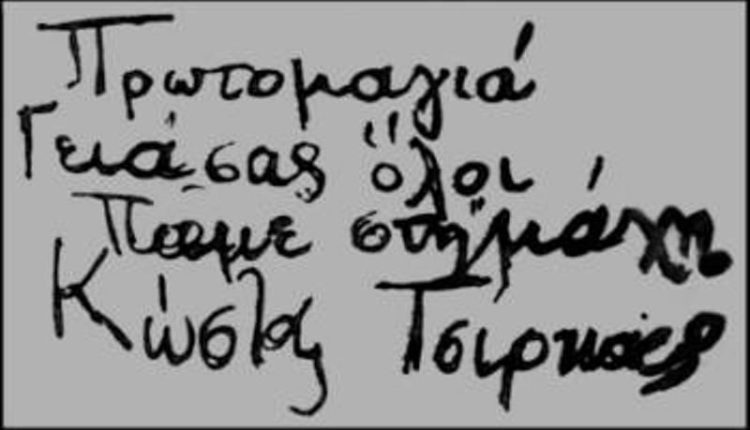 Πρωτομαγιά
Γειά σας ὅλοι
Πάμε στη μάχη
Κώστας Τσίρκας